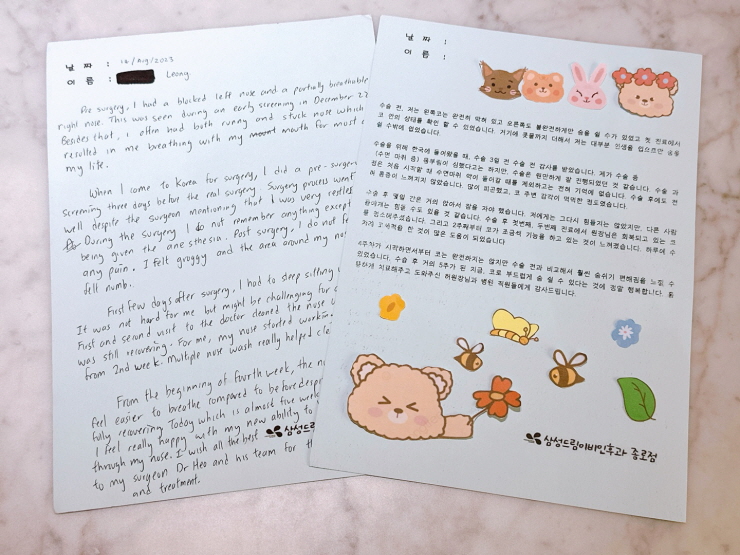 날 짜 : 14/Aug/2023
이 름 : Leong
Pre surgery, I had a blocked left nose and a partially breathable
right nose. This was seen during an early screening in December 22
Besides that, I often had both runny and stuck nose which
resulted in me breathing with my mouth for most
my life.
When I came to Korea for surgery, I did a pre-surgery
screening three days before the real surgery. Surgery process went
well despite the surgeon mentioning that I was very restless
During the surgery I do not remember anything except
being given the anesthesia. Post surgery, I do not fe
any pain. I felt groggy and the area around my no
felt numb.
First few days after surgery, I had to sleep sitting
It was not hard for me but might be challenging for
First and second visit to the doctor deaned the nose
was still recovering. For me, my nose started working
from 2nd week. Multiple nose wash really helped cle
From the beginning of fourth week, the no
feel easier to breathe compared to before desp
fully recovering Today which is almost five wee
I feel really happy with my new ability to
through my nose. I wish all the best
to my surgeon Dr Heo and his team for th
and treatment.
삼성드림이
날 짜 :
이 름 :
수술 전, 저는 왼쪽코는 완전히 막혀 있고 오른쪽도 불완전하게만 숨을 쉴 수가 있었고 첫 진료에서
코 안의 상태를 확인 할 수 있었습니다. 거기에 콧물까지 더해서 저는 대부분 인생을 입으로만 숨을
쉴 수밖에 없었습니다.
수술을 위해 한국에 들어왔을 때, 수술 3일 전 수술 전 검사를 받았습니다. 제가 수술 중
(수면 마취 중) 몸부림이 심했다고는 하지만, 수술은 원만하게 잘 진행되었던 것 같습니다. 수술 과
정은 처음 시작할 때 수면마취 약이 들어갈 때를 제외하고는 전혀 기억에 없습니다. 수술 후에도 전
혀 통증이 느껴지지 않았습니다. 많이 피곤했고, 코 주변 감각이 먹먹한 정도였습니다.
수술 후 몇일 간은 거의 앉아서 잠을 자야 했습니다. 저에게는 그다지 힘들기는 않았지만, 다른 사람
들이라면 힘들 수도 있을 것 같습니다. 수술 후 첫번째, 두번째 진료에서 원장님은 회복되고 있는 코
를 청소해주셨습니다. 그리고 2주째부터 코가 조금씩 기능을 하고 있는 것이 느껴졌습니다. 하루에 수
차례 코세척을 한 것이 많은 도움이 되었습니다
4주차가 시작하면서부터 코는 완전하지는 않지만 수술 전과 비교해서 훨씬 숨쉬기 편해짐을 느낄 수
있었습니다. 수술 후 거의 5주가 된 지금, 코로 부드럽게 숨 쉴 수 있다는 것에 정말 행복합니다. 훌
륭하게 치료해주고 도와주신 허원장님과 병원 직원들에게 감사드립니다.
삼성드림이비인후과 종로점